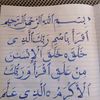 بسم الله الرحمن الرحيم
اقرأ باسم ربك الذي
خلق خلق الإنسن
من علق اقرأ وربك
الأكرم الذي علم